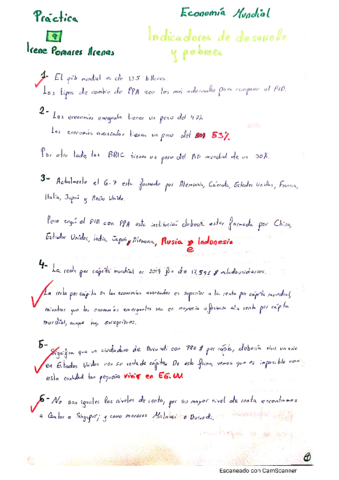 Práctica
Economía Mundial
Irene Pomares Arenas
Indicadores de desarrollo
y pobreza
1- El pib mundial es de 135 billones.
Los tipos de cambio de PPA son los más adecuados para comparar el PIB.
2- Las economías emergentes tienen un peso del 47%
Las economías avanzadas tienen un peso del 53%
Por otro lado los BRIC tienen un peso del PIB mundial de un 30%.
3- Actualmente el G-7 está formado por Alemania, Canadá, Estados Unidos, Francia,
Italia, Japón y Reino Unido
Pero según el PIB con PPA esta institución debería estar formada por China,
Estados Unidos, India, Japón, Alemania, Rusia e Indonesia
4- La renta per cápita mundial en 2019 fue de
La renta per cápita en las economías avanzadas es superior a la renta per cápita mundial,
mientras que las economías emergentes en su mayoría a la renta per cápita
mundial, aunque hay excepciones.
5- Significa que un ciudadano de Burundi con 780 $ per cápita, debería vivir un año
en Estados Unidos con su renta per cápita. De esta forma, vemos que es imposible con
esta cantidad tan pequeña vivir en EE.UU.
6- No son iguales los niveles de renta, por su mayor nivel de renta encontramos
a Qatar o Singapur; y como menores Malawi o Burundi.
Escaneado con CamScanner